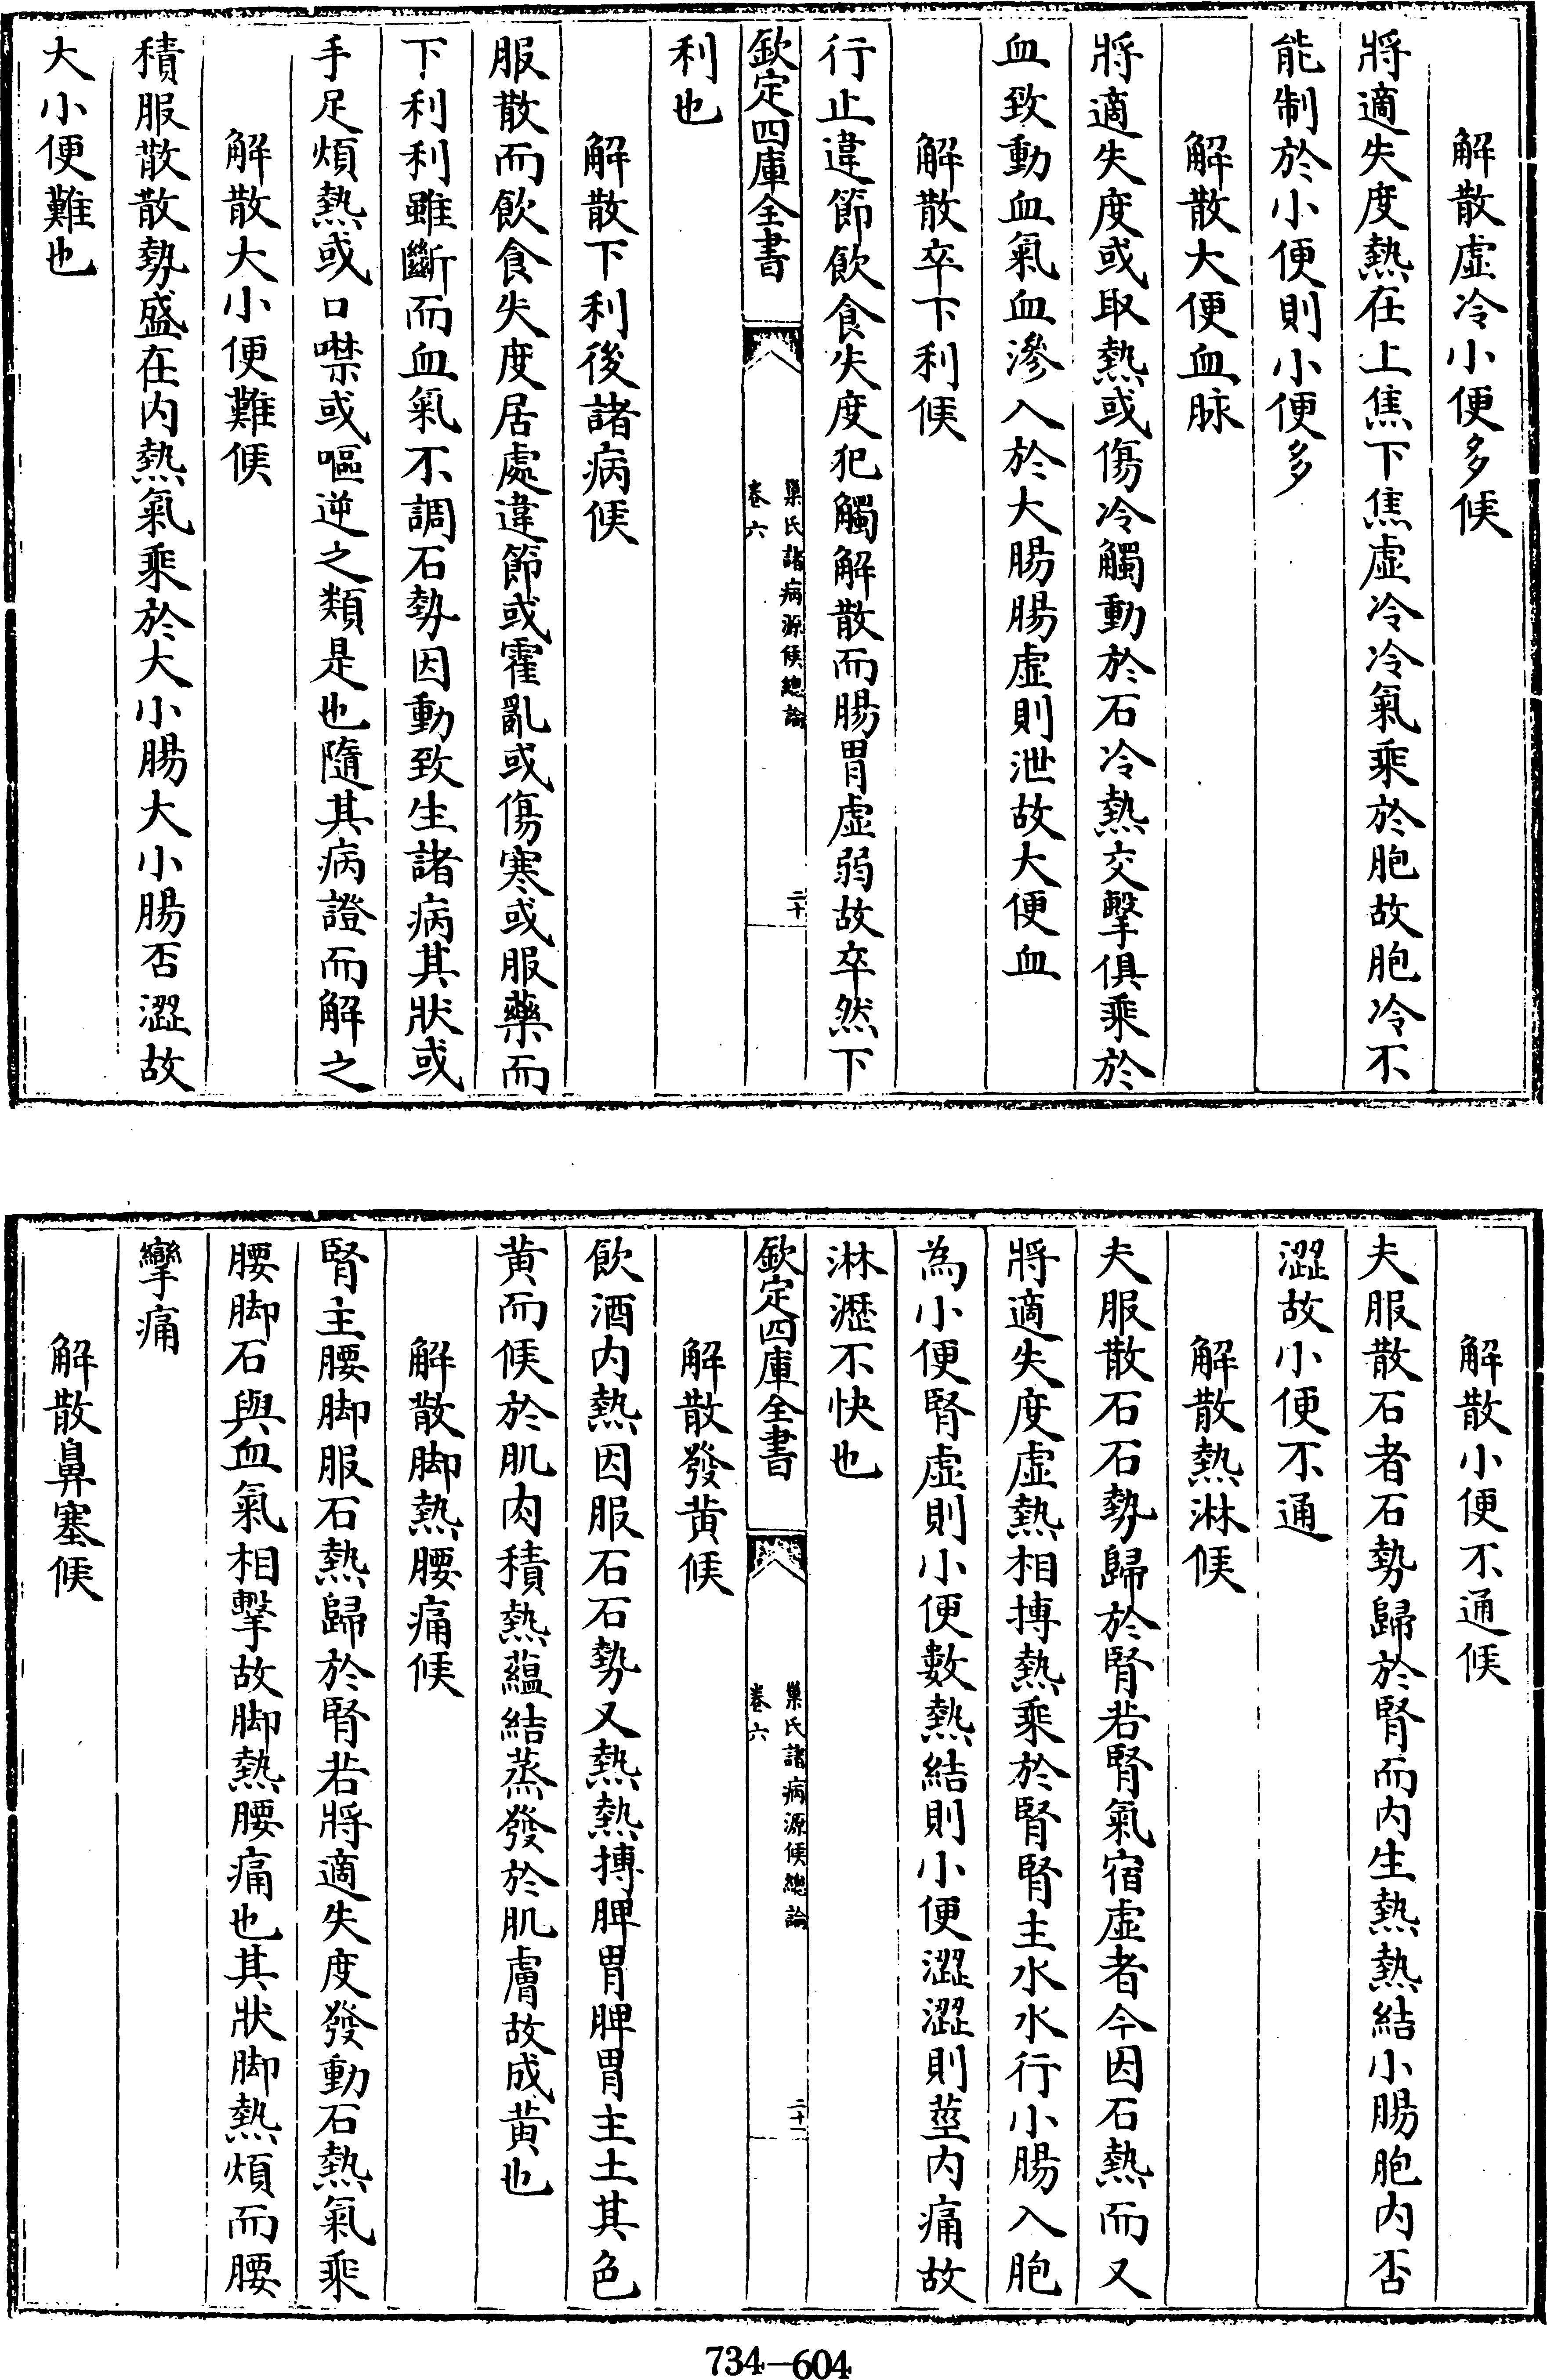 解散虚冷小便多候
將適失度熱在上焦下焦虚冷冷氣乘於胞故胞冷不
能制於小便則小便多
解散大便血脉
將適失度或取熱或傷冷觸動於石冷熱交擊俱乘於
血致動血氣血滲入於大腸腸虚則泄故大便血
解散卒下利候
行止違節飲食失度犯觸解散而腸胃虚弱故卒然下
欽定四庫全書
巢氏諸病源候總論
卷六
二十
利也
解散下利後諸病候
服散而飲食失度居處違節或霍亂或傷寒或服藥而
下利利雖斷而血氣不調石勢因動致生諸病其狀或
手足煩熱或口噤或嘔逆之類是也隨其病證而解之
解散大小便難候
積服散散勢盛在内熱氣乘於大小腸大小腸否澀故
大小便難也
解散小便不通候
夫服散石者石勢歸於腎而内生熱熱結小腸胞内否
澀故小便不通
解散熱淋候
夫服散石石勢歸於腎若腎氣宿虚者今因石熱而又
將適失度虚熱相搏熱乘於腎腎主水水行小腸入胞
為小便腎虚則小便數熱結則小便澀澀則莖内痛故
淋瀝不快也
欽定四庫全書
巢氏諸病源候總論
卷六
二十一
解散發黄候
飲酒内熱因服石石勢又熱熱搏脾胃脾胃主土其色
黄而候於肌肉積熱蘊結蒸發於肌膚故成黄也
解散脚熱腰痛候
腎主腰脚服石熱歸於腎若將適失度發動石熱氣乘
腰脚石與血氣相擊故脚熱腰痛也其狀脚熱煩而腰
攣痛
解散鼻塞候
734—604